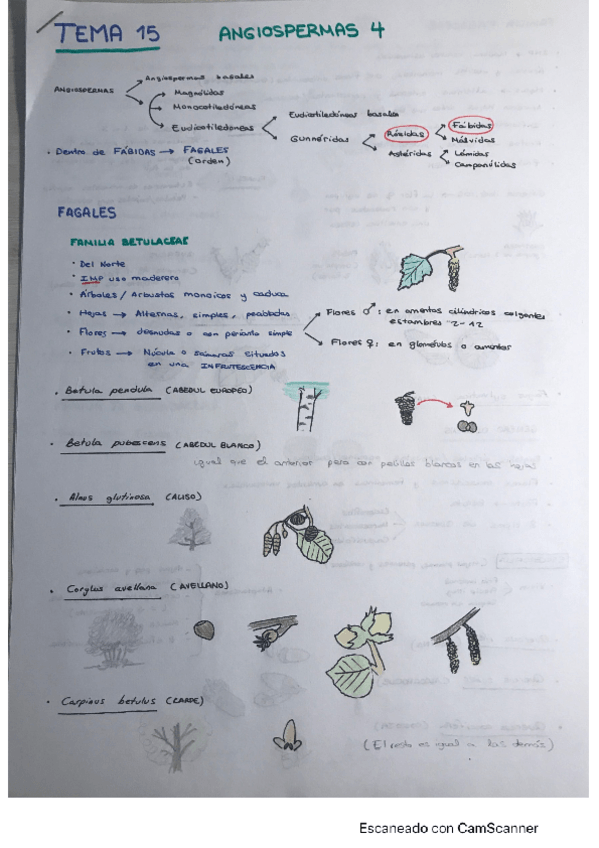 TEMA 15 ANGIOSPERMAS 4
ANGIOSPERMAS
Angiospermas basales
Magnólidas
Monocotiledóneas
Eudicotiledóneas
Eudicotiledóneas basales
Gunnéridas
Rósidas
Fábidas
Málvidas
Astéridas
Lámidas
Campanúlidas
· Dentro de FÁBIDAS → FAGALES
(orden)
FAGALES
FAMILIA BETULACEAE
· Del Norte
· IMP uso maderero
· Árboles / Arbustos monoicos y caduca
· Hojas → Alternas, simples, pecioladas
· Flores → desnudas o con perianto simple
Flores ♂: en amentos cilíndricos colgantes
estambres 2-12
Flores ♀: en glomérulos o amentos
· Frutos → Núcula o sámaras situados
en una INFRUTESCENCIA
· Betula pendula (ABEDUL EUROPEO)
· Betula pubescens (ABEDUL BLANCO)
igual que el anterior pero con pelillos blancos en las hojas
· Alnus glutinosa (ALISO)
· Corylus avellana (AVELLANO)
· Carpinus betulus (CARPE)
(El resto es igual a las demás)
Escaneado con CamScanner